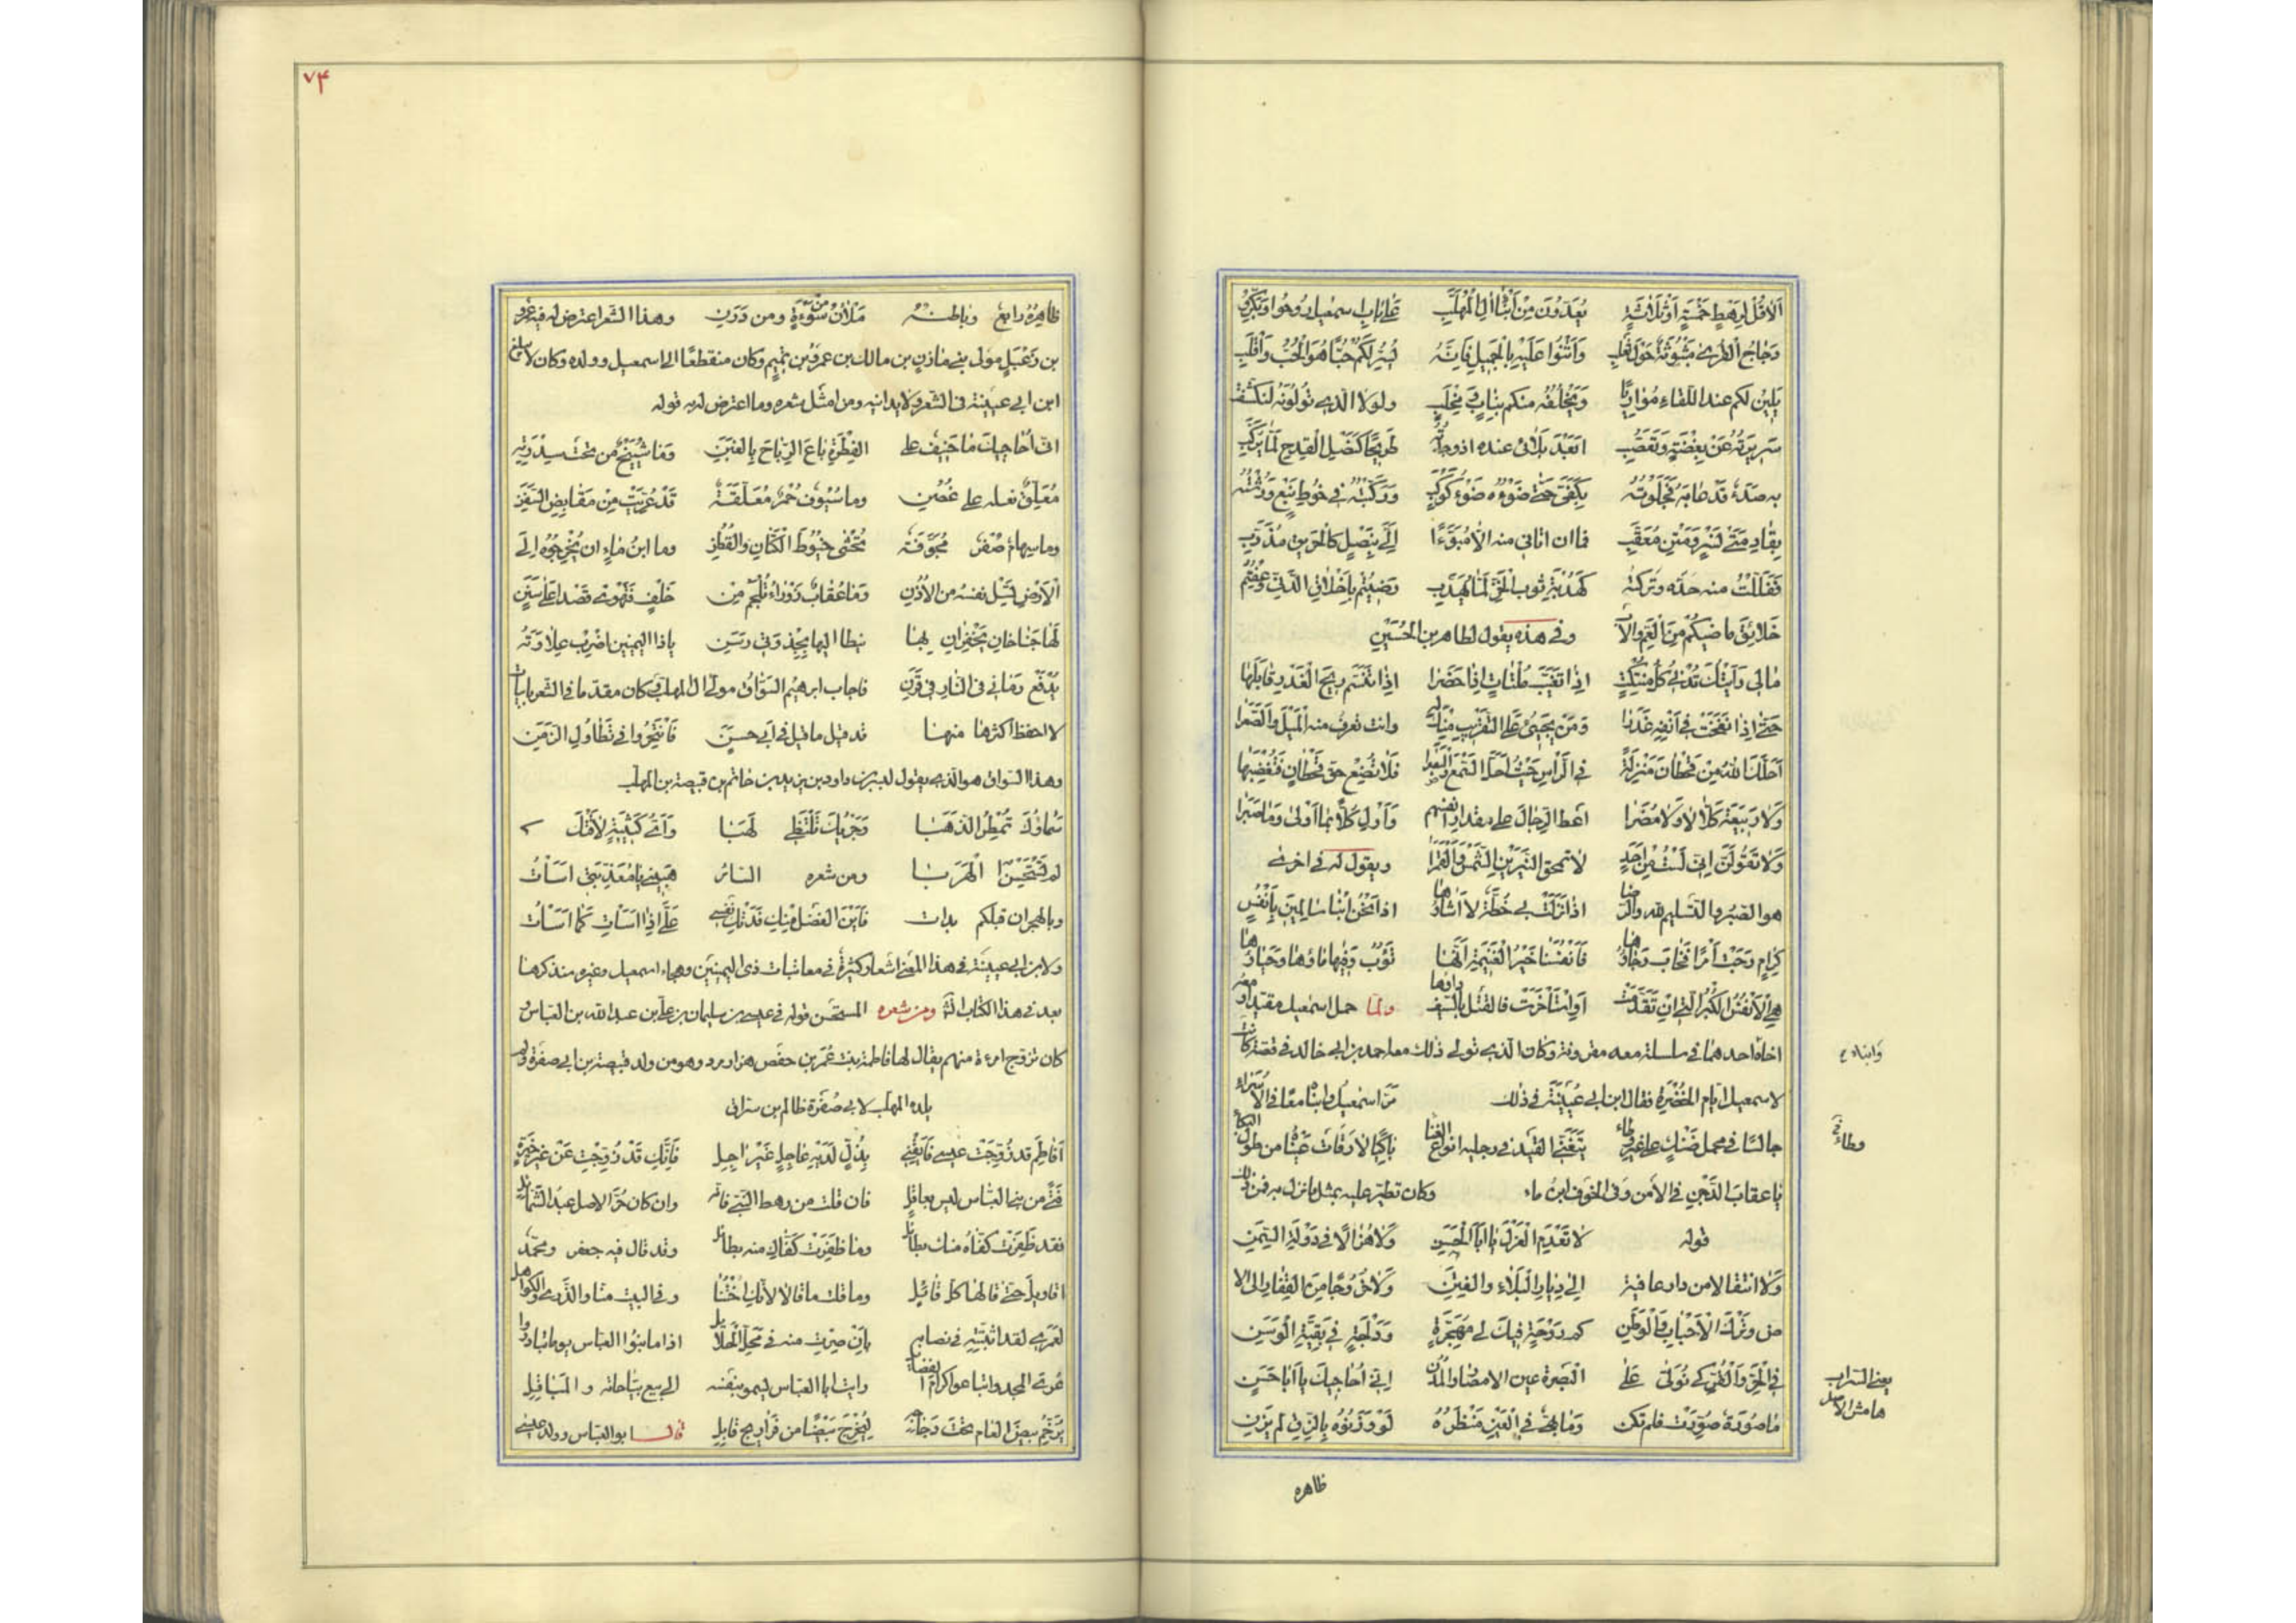 اَلاٰ قُلْ لِرَهْطٍ خَمْسَةٍ اَوْ ثَلاٰثَةٍ يُعَدّونَ مِنْ اَبْنٰاءِ اٰلِ الْمُهَلَّبِ عَلىٰ بٰابِ اسمعيل رُوحُوا وَبَكِّرُوا
دَجٰاجُ الْقُرىٰ مَبْثُوثَةٌ حَوْلَ ثَعْلَبِ وَاَثْنُوا عَلَيْهِ بِالْجَمِيلِ فَاِنَّهُ يُسِرُّ لَكُمْ حُبًّا هُوَ الْحُبُّ وَاقْلِبِ
يَلِينُ لكم عند اللّقٰاءِ مُوٰارِبًا وَيَخْلُفُهُ منكم بِنٰابٍ وَمِخْلَبِ ولولا الّذى تُولُونَهُ لَتَكَشَّفَتْ
سَرِيرَتُهُ عَنْ بِغْضَةٍ وَتَعَصُّبِ اَبَعْدَ بَلاٰئى عنده اذ وجدتُه طَرِيحًا كَنَصْلِ الْقِدْحِ لَمّٰا يُرَكَّبِ
به صَدَءٌ قَدْ عٰابَهُ فَجَلَوْتُهُ بِكَفَّىَّ حَتّىٰ ضَوْءُه ضَوْءُ كَوْكَبِ وَرَكَّبْتُهُ فى خُوطِ نَبْعٍ وَرِشْتُهُ
بِقٰادِمَتَىْ نَسْرٍ وَمَتْنٍ مُعَقَّبِ فما ان اتانى منه الاّ مُبَوَّءًا اِلَىَّ بِنَصْلٍ كالْحَريقِ مُذَرَّبِ
فَفَلَّلْتُ منه حَدَّه وتركتُه كَهُدْبَةِ ثوب الْخَزِّ لَمّٰا يُهَدَّبِ رَضِيتُم بِاَخْلاٰقِ الدَّنِىِّ وَعِفْتُمُ
خَلاٰئِقَ ماضيكُمْ مِنَ الْعَمِّ وَالْاَبِ وفى هذه يقول لطاهر بن الحُسَيْنِ
مٰا لى رَاَيْتُكَ تُدْنى كُلَّ مُنْتَكِثٍ اِذٰا تَغَيَّبَ مُلْتٰاثٍ اِذٰا حَضَرٰا اِذٰا تَنَسَّمَ رِيحَ الْغَدْرِ قٰابَلَهٰا
حَتّىٰ اِذٰا نَفَخَتْ فى اَنْفِهِ غَدَرٰا وَمَنْ يَجِئُ عَلَى التَّقْرِيبِ مِنْكَ لَه وانت تعرفُ منه الْمَيْلَ وَالصَّعَرٰا
اَحَلَّكَ اللهُ مِنْ قَحْطٰانَ مَنْزِلَةً فى الرَّأْسِ حَيْثُ اَحَلَّ السَّمْعَ وَالْبَصَرٰا فَلاٰ تُضِعْ حَقَّ قَحْطٰانٍ فَتُغْضِبَهٰا
وَلاٰ رَبِيعَةَ كَلاّٰ لاٰ وَلاٰ مُضَرٰا اَعْطِ الرِّجٰالَ على مقدارِ اَنْفُسِهِم وَاَوْلِ كُلاًّ بِمٰا اَوْلىٰ وَمٰا صَبَرٰا
وَلاٰ تَقُولَنَّ اِنّى لَسْتُ مِنْ اَحَدٍ لاٰ تمحق النَّيِّرَيْنِ الشَّمْسَ وَالْقَمَرٰا ويقول له فى اخرىٰ
هو الصبرُ والتّسليم لله والرّضا اذا نَزَلَتْ بى خُطَّةٌ لاٰ اَشٰاؤُها اذا نَحْنُ اُبْنٰا سٰالِمِينَ بِاَنْفُسٍ
كِرٰامٍ رَجَتْ اَمْرًا فَخٰابَ رَجٰاؤُهٰا فَاَنْفُسُنٰا خَيْرُ الْغَنِيمَةِ اِنَّهٰا تَؤُبُ وَفيها مٰاؤُهٰا وَحَيٰاؤُهٰا
هِىَ الْاَنْفُسُ الْكُبْرُ الَّتى اِنْ تَقَدَّمَتْ اَوِ اسْتَأْخَرَتْ فالقتل بالسّيف داؤها ولمّا حمل اسمعيل مقيّدا ومعه
اخاه احدهما فى سلسلة معه مقرونة وكان الّذى تولّى ذلك معه احمد بن ابى خالد فى قصّة كانت
وابناه م
لاسمعيل ايّام الخُضْرَةِ فقال ابن ابى عُيَيْنَةَ فى ذلك مَرَّ اسمعيلُ وابنٰاه معًا فى الْاُسَراء
جالسًا فى محمل ضَنْكٍ على غير وِطٰاء يَتَغَنَّى القيدُ فى رجليه انواع الغِنا بٰاكِيًا لاٰ رَقَأَتْ عَيْنٰاهُ من طول البكاء
وطائى
يٰا عقابَ الدَّجْنِ فى الأمن وَفى الخوف ابنُ ماء وكان تطيّر عليه بمثل ما نزل به فمن ذلك
قوله لاٰ تَعْدَمِ الْعَزْلَ يٰا اَبَا الْحَسَنِ وَلاٰ هُزٰالاً فى دَوْلَةِ السِّمَنِ
وَلاٰ انتقالا من دار عافية اِلىٰ دِيٰارِ الْبَلاٰءِ والفِتَنِ وَلاٰ خُرُوجًا مِنَ القِفٰارِ الى الا
رض وَتَرْكَ الْاَحْبٰابِ وَالْوَطَنِ كم رَوْحَةٍ فيكَ لى مُهَجِّرَةٍ وَدُلْجَةٍ فى بَقِيَّةِ الْوَسَنِ
فى الْحَرِّ وَالْقُرِّ كى تُوَلّىٰ عَلَى الْبَصْرَةِ عين الامصار والْمُدُن اِنّى اُحٰاجِيكَ يا اَبٰا حَسَنٍ
يعنى السّراب
هامش الاصل
مٰا صُورَةٌ صُوِّرَتْ فلم تكن وَمٰا بَهِىٌّ فى الْعَيْنِ مَنْظَرُهُ لَوْ وَزَنُوهُ بِالزِّقِّ لم يَزِنِ
ظاهره
٧٤
ظاهِرُهُ رٰايِعٌ وبَاطنُهُ مَلْاٰنُ من سَوْءَةٍ ومن دَرَنِ وهذا الشّعر اعترض له فيه عَمرو
بن زَعْبَلٍ مَوْلى بنى مٰازِنِ بن مالك بن عمرو بن تميم وكان منقطعًا الى اسمعيل وولده وكان لا يبلغ
ابن ابى عيينة فى الشّعر ولا يدانيه ومن امثل شعره وما اعترض له به قوله
انّى اُحٰاجيكَ مٰا حَنِيفٌ على الفِطْرَةِ بٰاعَ الرَّبٰاحَ بِالْغَبَنِ وَمٰا شُيَيْخٌ مِن تحتِ سِدْرَتِهِ
مُعَلِّقٌ نعله على غُصُنِ وما سُيُوفٌ حُمْرٌ مُعَلَّقَةٌ قَدْ عُرِّيَتْ مِنْ مَقٰابِضِ السَّفَنِ
وما سِهٰامٌ صُفْرٌ مُجَوَّفَةٌ تُحْشىٰ خُيُوطَ الْكَتّٰانِ وَالْقُطُنِ وما ابنُ مٰاءٍ ان يُخْرِجُوهُ اِلَى
الْاَرْضِ تَسِلْ نفسُهُ من الْاُذُنِ وَمٰا عُقٰابٌ زَوْرٰاءُ تُلْجَمُ مِنْ خَلْفٍ فَتَهْوى قَصْدًا عَلىٰ سَنَنِ
لَهٰا جَنٰاحٰانِ يَحْفِزٰانِ بِهٰا نيطا اليها بِجِذْوَتَىْ رَسَنِ ياذا اليمينين اضْرِب عِلاٰوَتَهُ
يُدْفَعْ ومَانى فى النّارِ فى قَرَنِ فاجاب ابراهيم السَّوّاقُ مولى ال المهلّب وكان مقدّما فى الشّعر بابيات
لا احفظ اكثرها منها قد قيل ما قيل فى اَبى حسنٍ فَانْتَحِرُوا فى تَطٰاوُلِ الزَّمَنِ
وهذا السّوّاق هو الّذى يقول لبشر بن داود بن يزيد بن حٰاتم بن قبيصة بن المهلّب
سَمٰاؤُكَ تُمْطِرُ الذَّهَبٰا وَحَرْبُكَ تَلْتَظِى لَهَبٰا وَاَىُّ كَتِيبَةٍ لاٰقَتْكَ
لم تَسْتَحْسِنِ الْهَرَبٰا ومن شعره السّائر هَبِينى يا مُعَذِّبَتى اَسَأْتُ
وبالهجران قبلكم بدات فَاَيْنَ الْفَضْلُ مِنْكِ فَدَتْكِ نَفْسِى عَلَىَّ اِذٰا اَسَأْتِ كَمٰا اَسَأْتُ
ولابن ابى عيينة فى هذا المعنى اشعار كثيرة فى معاتبات ذى اليمينين وهجاء اسمعيل وغيره سنذكرها
بعد فى هذا الكتاب ومن شعره المستحسن قوله فى عيسى بن سليمان بن على بن عبد الله بن العبّاس و
كان تزوّج امرءة منهم يقال لها فاطمة بنت عُمَر بن حفص هزار مرد وهو من ولد قبيصة بن ابى صفرة ولم
يلده المهلّب لابى صُفْرَة ظالم بن سراق
اَفٰاطِمَ قد زُوِّجْتِ عيسى فَاَيْقِنى بِذُلٍّ لَدَيْهِ عٰاجِلٍ غَيْرِ اٰجِلِ فَاِنَّكِ قَدْ زُوِّجْتِ عَنْ غير خِبْرَةٍ
فَتًى من بنى العبّاس ليس بعاقلٍ فان قلت من رهط النّبىّ فانّه وان كان حُرَّ الاصل عَبْدُ الشّمائل
فقد ظَفِرَتْ كَفّاهُ منك بطائل وما ظَفِرَتْ كَفّاكِ منه بطائل وقد قال فيه جعفر ومحمّد
اقاويلَ حتّى قالها كلّ قٰائِلِ وما قلت ما قالا لانّكِ اُخْتُنٰا وفى البيت منّا والذُّرىٰ والكواهل
لَعَمْرى لقد اثبتِّهِ فى نصابه بِاَنْ صِرْتِ منه فى مَحَلِّ الْحَلاٰئل اذا ما بنوا العبّاس يوما تبادروا
عُرى المجد وابتاعوا كرام الفضائل رايت ابا العبّاس يسمو بنفسه الى بيع بيّاحاته والمبٰاقِلِ
يُرَخِّمُ بيض العام تحت دَجٰاجه لِيُخْرِجَ بَيْضًا من فَرٰاريج قٰابِلِ قالـــ ابو العبّاس وولد عيسى